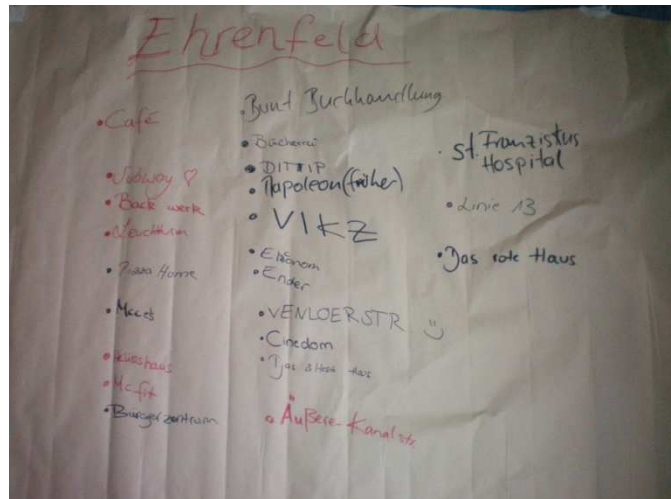 Ehrenfeld
• Café
• Subway ♡
• Back werk
• Leuchtturm
• Pizza Home
• Mcces
• Helioshaus
• Mc fit
• Bürgerzentrum
• Bunt Buchhandlung
• Bücherei
• DITIP
• Napoleon (früher)
• VIKZ
• Ender
• VENLOERSTR
• Cinedom
• Das
• Äußere-Kanalstr.
• St. Franziskus
Hospital
• Linie 13
• Das rote Haus